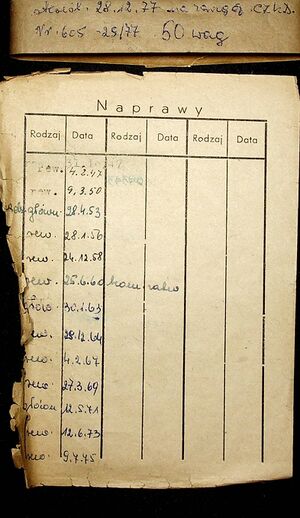 28.12.77
Nr. 605-25/77 50 wag
Naprawy
Rodzaj Data Rodzaj Data Rodzaj Data
rew. 4.2.47
rew. 9.3.50
główn. 28.4.53
rew. 28.1.56
rew. 24.12.58
rew. 25.6.60
główn. 30.1.63
rew. 28.12.64
rew. 4.2.67
rew. 27.3.69
główn 12.5.71
rew. 12.6.73
rew. 9.7.75